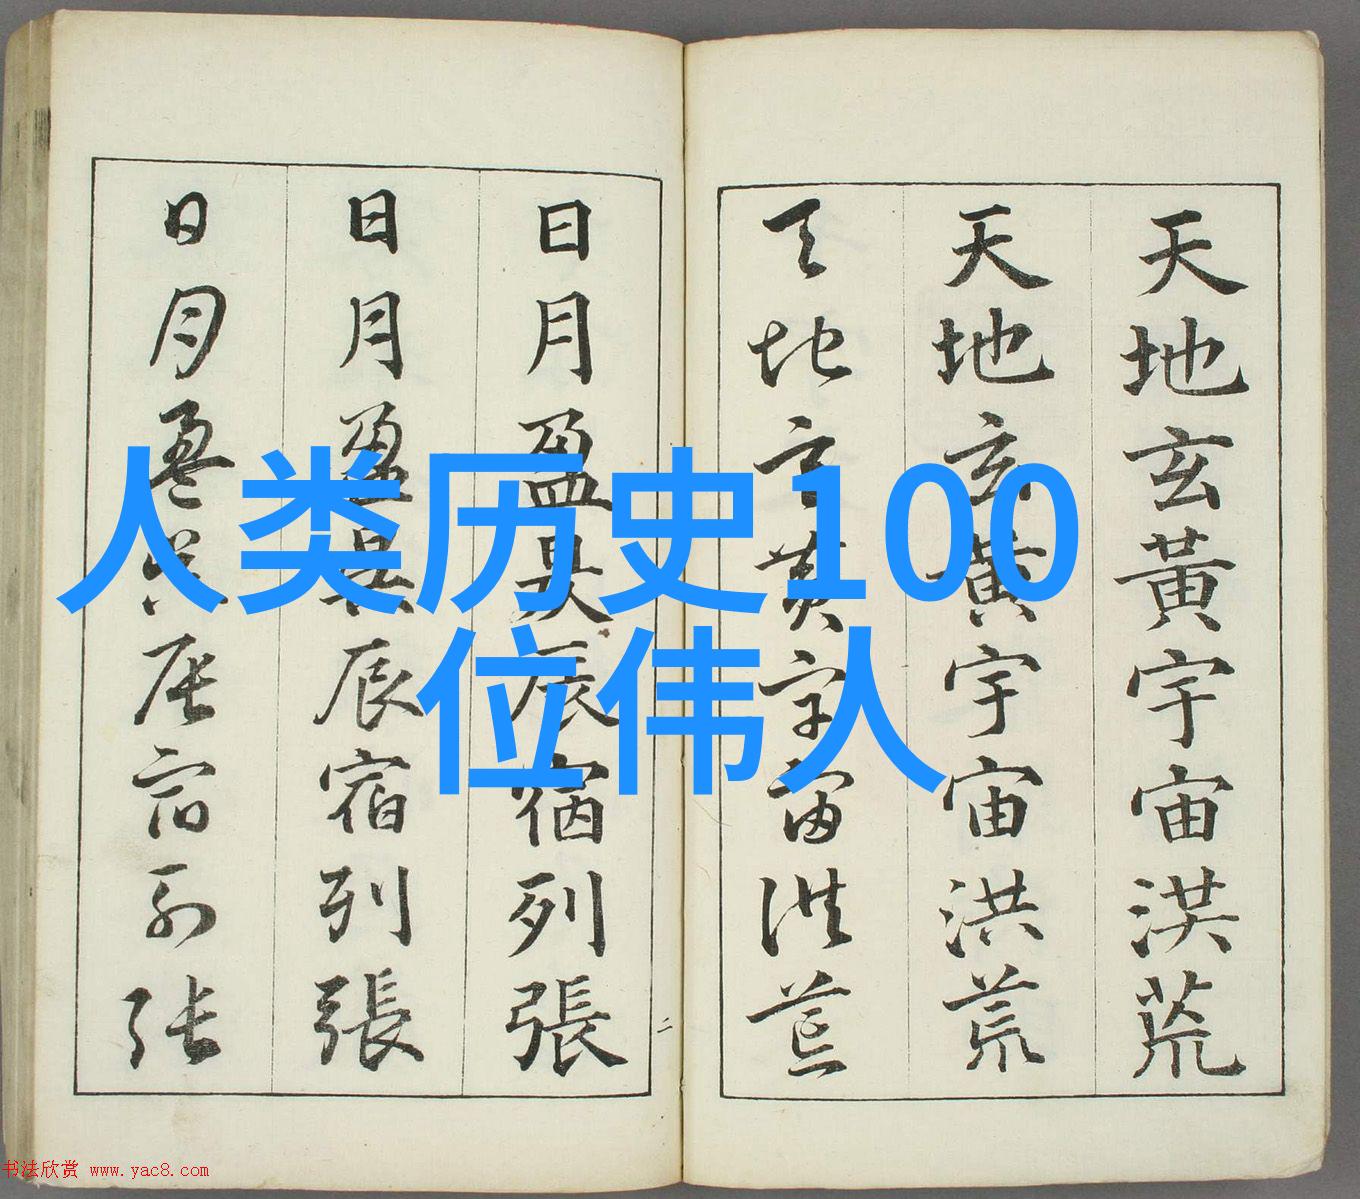 天地玄黃宇宙洪荒
天地玄黃宇宙洪荒
天地玄黃宇宙洪荒
日月盈昃辰宿列張
日月盈昃辰宿列張
日月盈昃辰宿列張
二
人类历史100
位伟人
书法欣赏 www.yac8.com